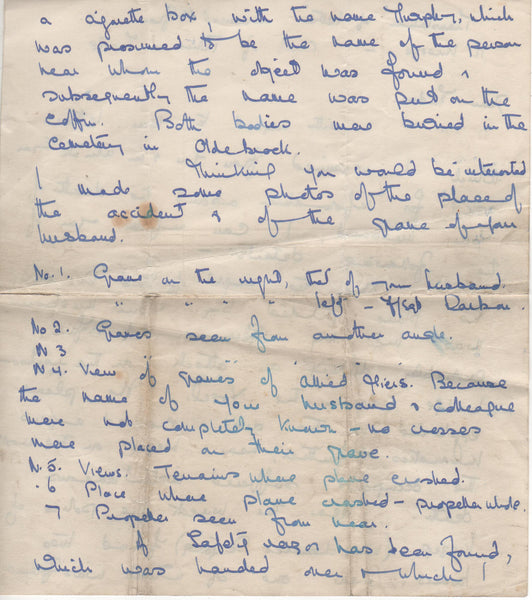 a cigarette box, with the name Murphy, which
was presumed to be the name of the person
near whom the object was found &
subsequently the name was put on the
coffin. Both bodies were buried in the
cemetery in Oldebroek.
Thinking you would be interested
I made some photos of the place of
the accident & of the grave of your
husband.
No. 1. Grave on the right, that of your husband.
" " " " left - F/Sgt
No 2. Graves seen from another angle.
N 3 " " " " "
N 4. View of graves of allied fliers. Because
the name of your husband & colleague
were not completely known - no crosses
were placed on their grave.
N. 5. Views. Terrains where plane crashed.
" 6 Place where plane crashed - propeller whole.
" 7 Propeller seen from near.
A Safety razor has been found,
which was handed over & which I